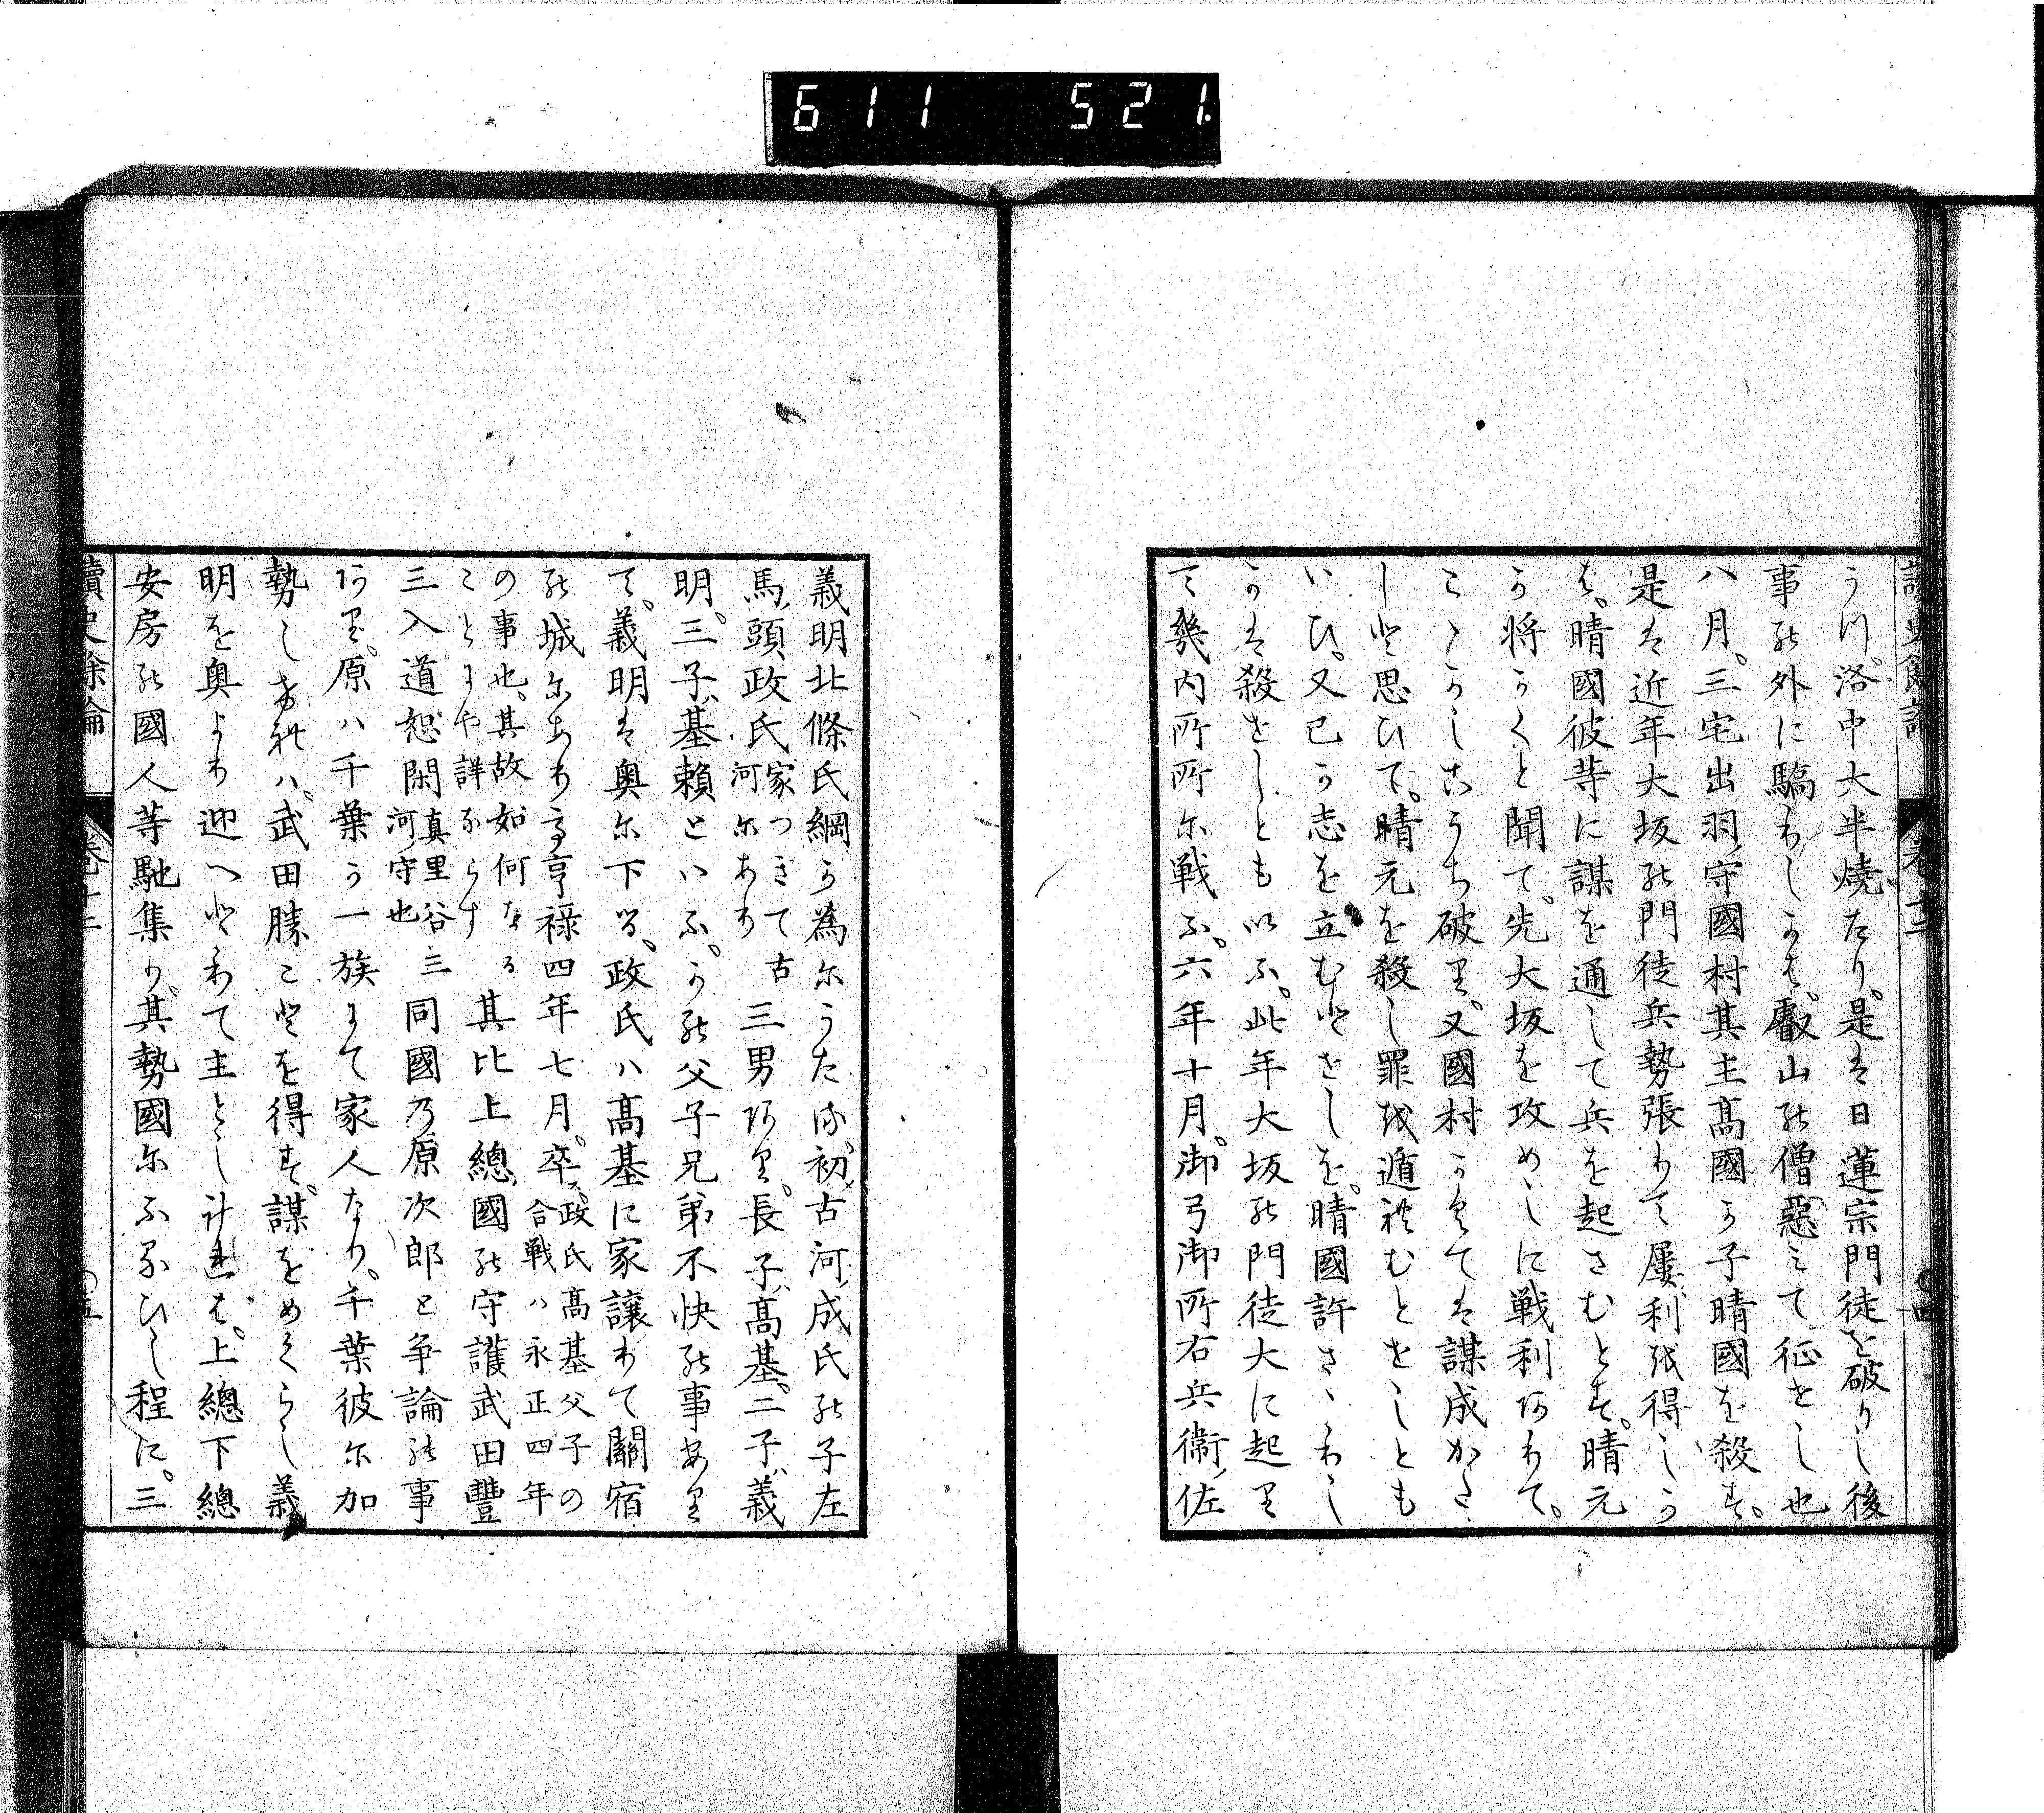 611 521.
うつ。洛中大半焼たり。是は日蓮宗門徒を破りし後
事の外に驕りしかば、叡山の僧惡みて征せし也
八月。三宅出羽守國村其主髙國か子晴國を殺す。
是は近年大坂の門徒兵勢張りて屢利を得しか
は、晴國彼等に謀を通して兵を起さむとす。晴元
か将かくと聞て。先大坂を攻めしに戦利ありて。
こゝかしこうち破る。又國村かくては謀成かたし
しと思ひて。晴元を殺し罪を遁れむとせしとも
いひ。又己か志を立むとせしを。晴國許さゝりし
かは殺せしとも以ふ。此年大坂の門徒大に起り
て幾内所所に戦ふ。六年十月。御弓御所右兵衞佐
義明北條氏綱か為にうたる。初古河成氏の子左
馬頭政氏家つぎて古河にあり三男あり。長子髙基。二子義
明。三子基頼といふ。かの父子兄弟不快の事あり
て。義明は奥に下る。政氏ハ髙基に家譲りて關宿
の城にあり。亨祿四年七月。卒。政氏髙基父子の合戦ハ永正四年
の事也。其故如何なることにや詳ならす其比上總國の守護武田豐
三入道恕閑真里谷三河守也同國乃原次郎と争論の事
あり。原ハ千葉か一族にて家人なり。千葉彼に加
勢しければ。武田勝ことを得す。謀をめくらし義
明を奥より迎へとりて主とし計れは。上總下總
安房の國人等馳集り其勢國にふるひし程に。三
讀史餘論
巻十二